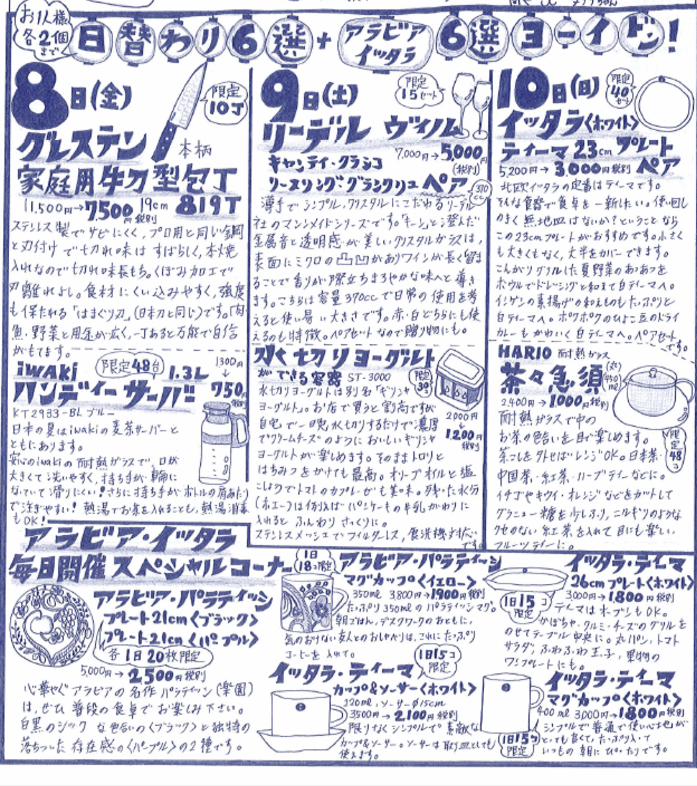 お1人様
各2個
まで
日替わり6選+アラビア イッタラ 6選ヨーイドン!
8日(金)
限定
10丁
グレステン
本柄
家庭用牛刀型包丁
11,500円→7500円税別 19cm 819T
ステンレス製でサビにくく、プロ用と同じ鋼
と刃付けで切れ味はすばらしく、本焼
入れなので切れ味長もち。くぼみ加工で
刃離れよし。食材にくい込みやすく、強度
も保たれる「はまぐり刃」(日本刀と同じ)です。「肉・
魚・野菜と用途が広く、一丁あると万能で自信
がもてます。
iwaki
限定48台
1.3L
1300円
→
750円
税別
ハンディーサーバー
KT2933-BL ブルー
日本の夏はiwakiの麦茶サーバーと
ともにあります。
安心のiwakiの耐熱ガラスで、口が
大きくて洗いやすく、持ち手が
なっていて滑りにくい!さらに持ち手がボトルの肩あたり
で注ぎやすい!熱湯でお茶を入れることも、熱湯消毒
もOK!
9日(土)
限定
15セット
リーデル ヴィノム
7,000円→5,000円
(税別)
キャンティ・クラシコ
リースリンググランクリュ ペア
370cc
薄手でシンプル、クリスタルにこだわるリーデル
社のマシンメイドシリーズです。「キーン」と澄んだ
金属音と透明感が美しいクリスタルガラスは、
表面にミクロの凸凹がありワインが長く留ま
ることで香りが際立ちまろやかな味へと導き
ます。こちらは容量370ccで日常の使用を考
えると使い易い大きさです。赤・白どちらにも使
えるのも特徴。ペアセットなので贈り物にも。
水切りヨーグルト
ができる容器 ST-3000
限定
30コ
2000円
→
1,200円
税別
水切ヨーグルトは別名「ギリシャ
ヨーグルト」。お店で買うと割高ですが
自宅で一晩水切りするだけで濃厚
でクリームチーズのようにおいしいギリシャ
ヨーグルトが楽しめます。そのままトロリと
はちみつをかけても最高。オリーブオイルと塩
こしょうでトマトのカプレーゼも美味。残った水分
(ホエー)は栄養たっぷりパンケーキの牛乳がわりに
入れると ふんわり さっくりに。
ステンレスメッシュでフィルターレス、食洗機対応です。
10日(日)
限定
40セット
イッタラ<ホワイト>
ティーマ23cmプレート
5,200円→3,000円税別 ペア
北欧イッタラの定番はティーマです。
そんな食器で食卓を一新したい。使い回し
のきく無地皿はないか?ということなら
この23cmプレートがおすすめです。小さく
も大きくもなく、大半をカバーできます。
こんがりグリルした夏野菜のあつあつを
ボウルでドレッシングと和えて白ティーマへ。
インゲンの素揚げの和えものもたっぷりと
白ティーマへ。ポクポクのひよこ豆のドライ
カレーもかわいく白ティーマへ。ペアセット
です。
HARIO 耐熱ガラス
茶々急須
2,400円→1000円税別
限定
48コ
耐熱ガラスで中の
お茶の色あいを目で楽しめます。
茶こしを外せばレンジOK。日本茶・
中国茶・紅茶・ハーブティーなどに。
イチゴやキウイ・オレンジなどをカットして
グラニュー糖を少しふり、ニルギリのような
クセのない紅茶を入れて目にも楽しい
フルーツティーに。
アラビア・イッタラ
毎日開催スペシャルコーナー
アラビア・パラティッシ
プレート21cm<ブラック>
プレート21cm<パープル>
各1日20枚限定
5,000円→2,500円税別
心華やぐアラビアの名作パラティッシ(楽園)
は、ぜひ普段の食卓でお楽しみ下さい。
白黒のシックな色合いの<ブラック>と独特の
落ちついた存在感の<パープル>の2種です。
1日
18コ限定
アラビア・パラティッシ
マグカップ<イエロー>
350ml 3,800円→1900円税別
たっぷり350mlのパラティッシマグ。
朝ごはん、デスクワークのおともに、
気のおけない友人とのおしゃべりは、これにたっぷり
コーヒーを入れて。
1日15コ
限定
イッタラ・ティーマ
カップ&ソーサー<ホワイト>
220ml、ソーサー∅15cm
3500円→2,100円税別
限りなくシンプルで素敵な
カップ&ソーサー。ソーサーは取り皿としても
使えます。
イッタラ・ティーマ
26cmプレート<ホワイト>
3,000円→1800円税別
1日15コ
限定
ティーマはオーブンもOK。
かぼちゃ・クルミ・チーズのグリルを
のせてテーブル中央に。丸パン、トマト
サラダ、ふわふわ玉子、果物の
ワンプレートにも。
イッタラ・ティーマ
マグカップ<ホワイト>
400ml 3,000円→1800円税別
1日15コ
限定
シンプルで普通で使い心地が
とっても良くて、たっぷり入って
いつもの朝にぴったりです。